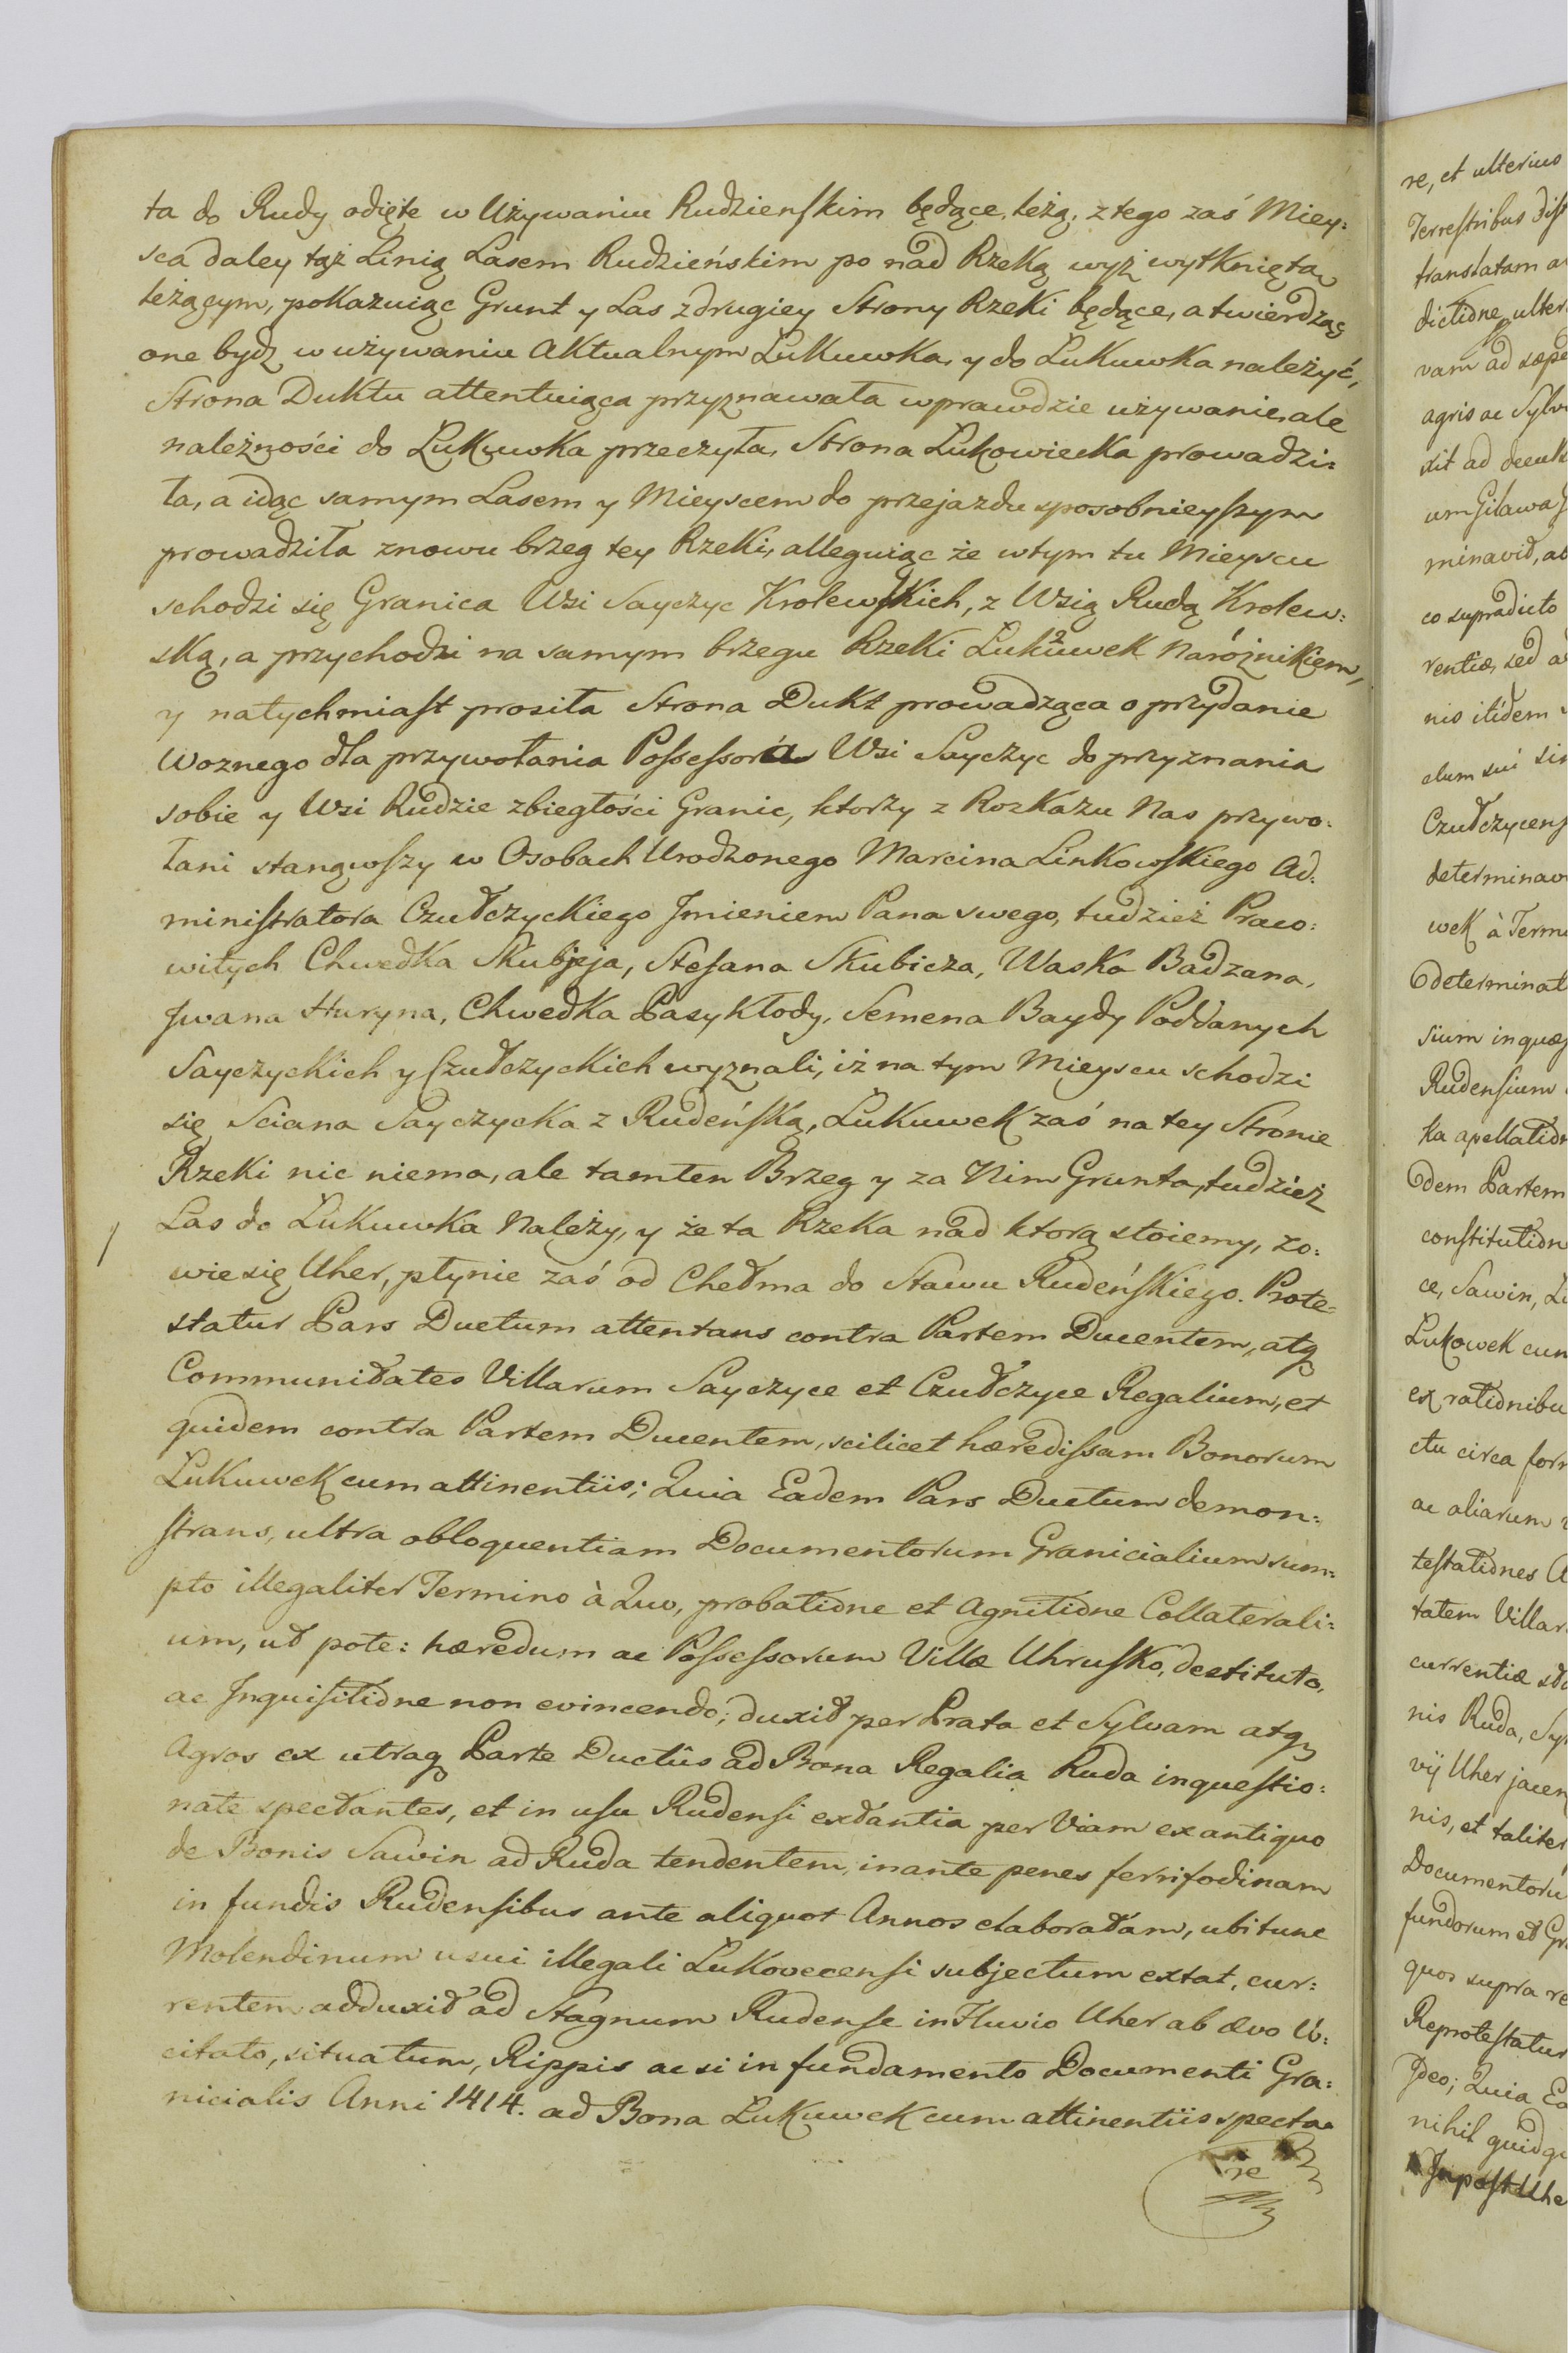 ta do Rudy odięte w Używaniu Rudzienskim będące, leżą, z tego zaś Miey:
sca daley tąż Linią Lasem Rudzieńskim po nad Rzeką wyż wytkniętą
leżącym, pokazuiąc Grunt y Las z drugiey Strony Rzeki będące, a twierdząc
one bydz w używaniu Aktualnym Lukuwka, y do Lukuwka należyć,
Strona Duktu attentuiąca przyznawała wprawdzie używanie, ale
należności do Lukuwka przeczyła, Strona Lukowiecka prowadzi:
ła, a idąc samym Lasem y Mieyscem do przejazdu sposobnieyszym
prowadziła znowu brzeg tey Rzeki, alleguiąc że w tym tu Mieyscu
schodzi się Granica Wsi Sayczyc Krolewskich, z Wsią Rudą Krolew:
ską, a przychodzi na samym brzegu Rzeki Lukuwek Naróżnikiem,
y natychmiast prosiła Strona Dukt prowadząca o przydanie
Woznego dla przywołania Possessora Wsi Sayczyc do przyznania
sobie y Wsi Rudzie zbiegłości Granic, ktorzy z Rozkazu Nas przywo:
łani stanąwszy w Osobach Urodzonego Marcina Linkowskiego Ad:
ministratora Czułczyckiego Jmieniem Pana swego, tudzież Praco:
witych Chwedka Skubjeja, Stefana Skubicza, Waska Badzana,
Jwana Huryna, Chwedka Pasykłody, Semena Baydy Poddanych
Sayczyckich y Czułczyckich wyznali, iż na tym Mieyscu schodzi
się Sciana Sayczycka z Rudeńską, Lukuwek zaś na tey Stronie
Rzeki nic niema, ale tamten Brzeg y za Nim Grunta, tudzież
Las do Lukuwka Należy, y że ta Rzeka nad ktorą stoiemy, zo:
wie się Uher, płynie zaś od Chełma do Stawu Rudeńskiego. Prote=
statur Pars Ductum attentans contra Partem Ducentem, atq
Communitates Villarum Sayczyce et Czułczyce Regalium, et
quidem contra Partem Ducentem, scilicet hæredissam Bonorum
Lukuwek cum attinentiis; Quia Eadem Pars Ductum demon:
strans, ultra obloquentiam Documentorum Granicialium sum:
pto illegaliter Termino à Quo, probatione et Agnitione Collaterali:
um, ut pote: hæredum ac Possessorum Villæ Uhrusko, destituto,
ac Jnquisitione non evincendo; duxit per Prata et Sylvam atq
Agros ex utraq Parte Ductûs ad Bona Regalia Ruda inquestio:
nate spectantes, et in usu Rudensi extantia per Viam ex antiquo
de Bonis Sawin ad Ruda tendentem, inante penes ferrifodinam
in fundis Rudensibus ante aliquot Annos elaboratam, ubi tunc
Molendinum usui illegali Lukovecensi subjectum extat, cur:
rentem adduxit ad Stagnum Rudense in Fluvio Uher ab ævo U:
citato, situatum, Rippis ac si in fundamento Documenti Gra:
nicialis Anni 1414. ad Bona Lukuwek cum attinentiis specta=
re
re, et ulterius
Terrestribus dis
translatam a
dictione ulter
vam ad sæpe
agris ac Sylv
xit ad decuk
um Gilawa
minavit, ab
co supradicto
rentiæ, sed a
nis itidem
clum sui sin
Czułczycens
determinav
wek à Term
determinat
sium in quæ
Rudensium
ka apellation
dem Partem
constitution
ce, Sawin, Lu
Lukowek cum
ex rationibu
ctu circa for
ac aliarum
testationes A
tatem Villar
currentiæ
nis Ruda, Sy
vij Uher jacen
nis, et taliter
Documentoru
fundorum et Gr
quos supra re
Reprotestatur
Jdeo; Quia Ea
nihil quidqu
Jnpost Uhe